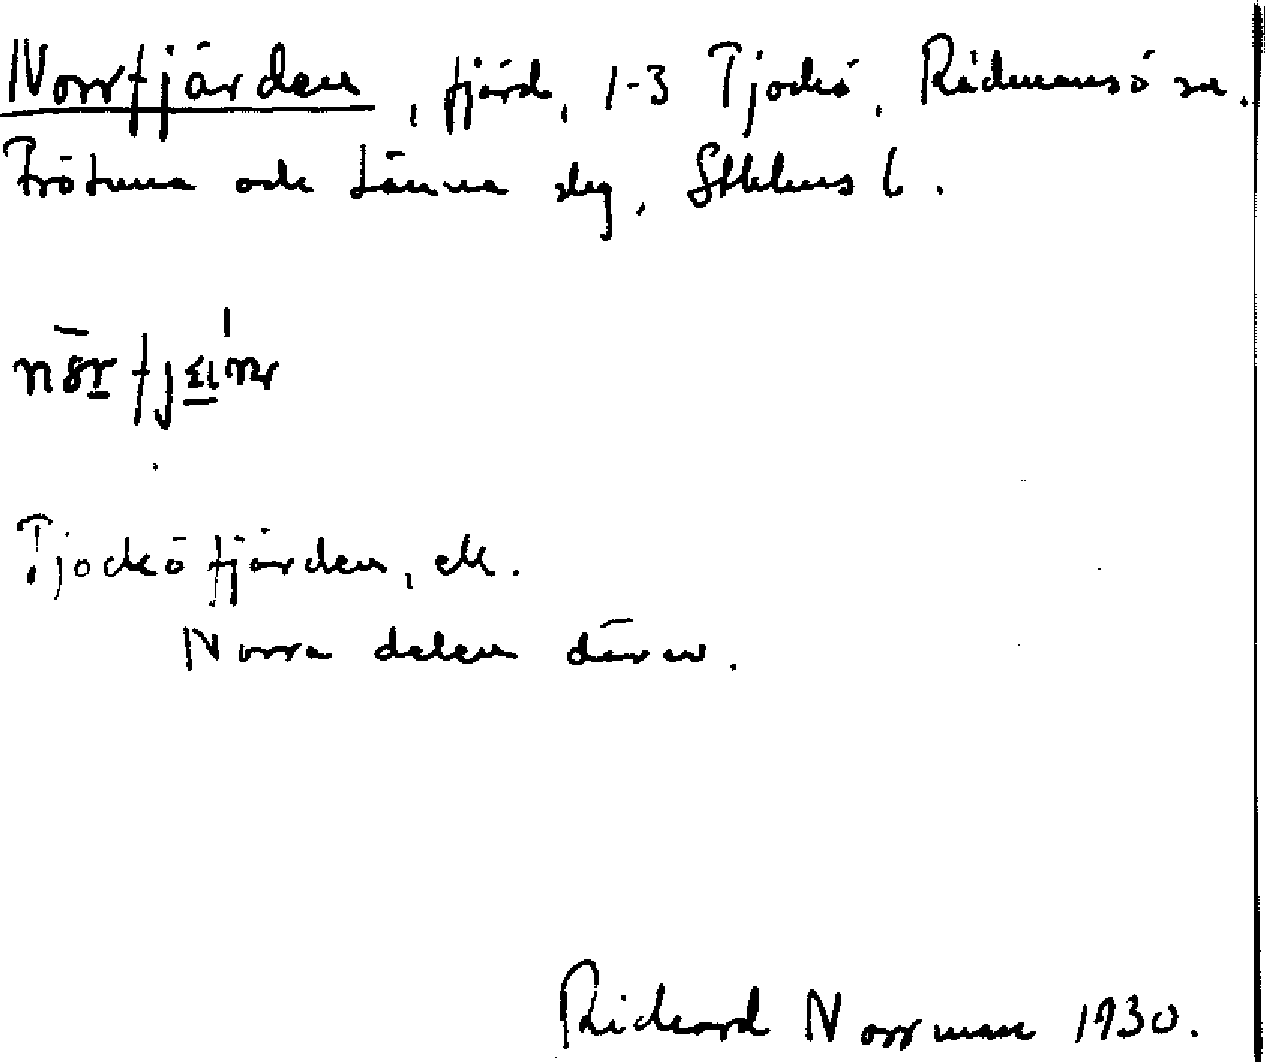 Norrfjärden, fjärd, 1-3 Tjockö, Rådmansö sn.
Frötuna och Länna slg, Sthlms l.
Tjocköfjärden, ek.
Norra delen därav.
Rickard Norrman 1930.